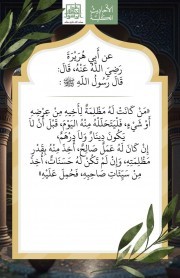 الأحاديث
الكلية
عن أبي هُرَيْرَةَ
رَضِيَ اللَّهُ عَنْهُ، قَالَ:
قَالَ رَسُولُ اللَّهِ ﷺ :
«مَنْ كَانَتْ لَهُ مَظْلَمَةٌ لِأَخِيهِ مِنْ عِرْضِهِ
أَوْ شَيْءٍ، فَلْيَتَحَلَّلْهُ مِنْهُ الْيَوْمَ، قَبْلَ أَنْ لَا
يَكُونَ دِينَارٌ وَلَا دِرْهَمٌ،
إِنْ كَانَ لَهُ عَمَلٌ صَالِحٌ، أُخِذَ مِنْهُ بِقَدْرِ
مَظْلَمَتِهِ، وَإِنْ لَمْ تَكُنْ لَهُ حَسَنَاتٌ، أُخِذَ
مِنْ سَيِّئَاتِ صَاحِبِهِ، فَحُمِلَ عَلَيْهِ»